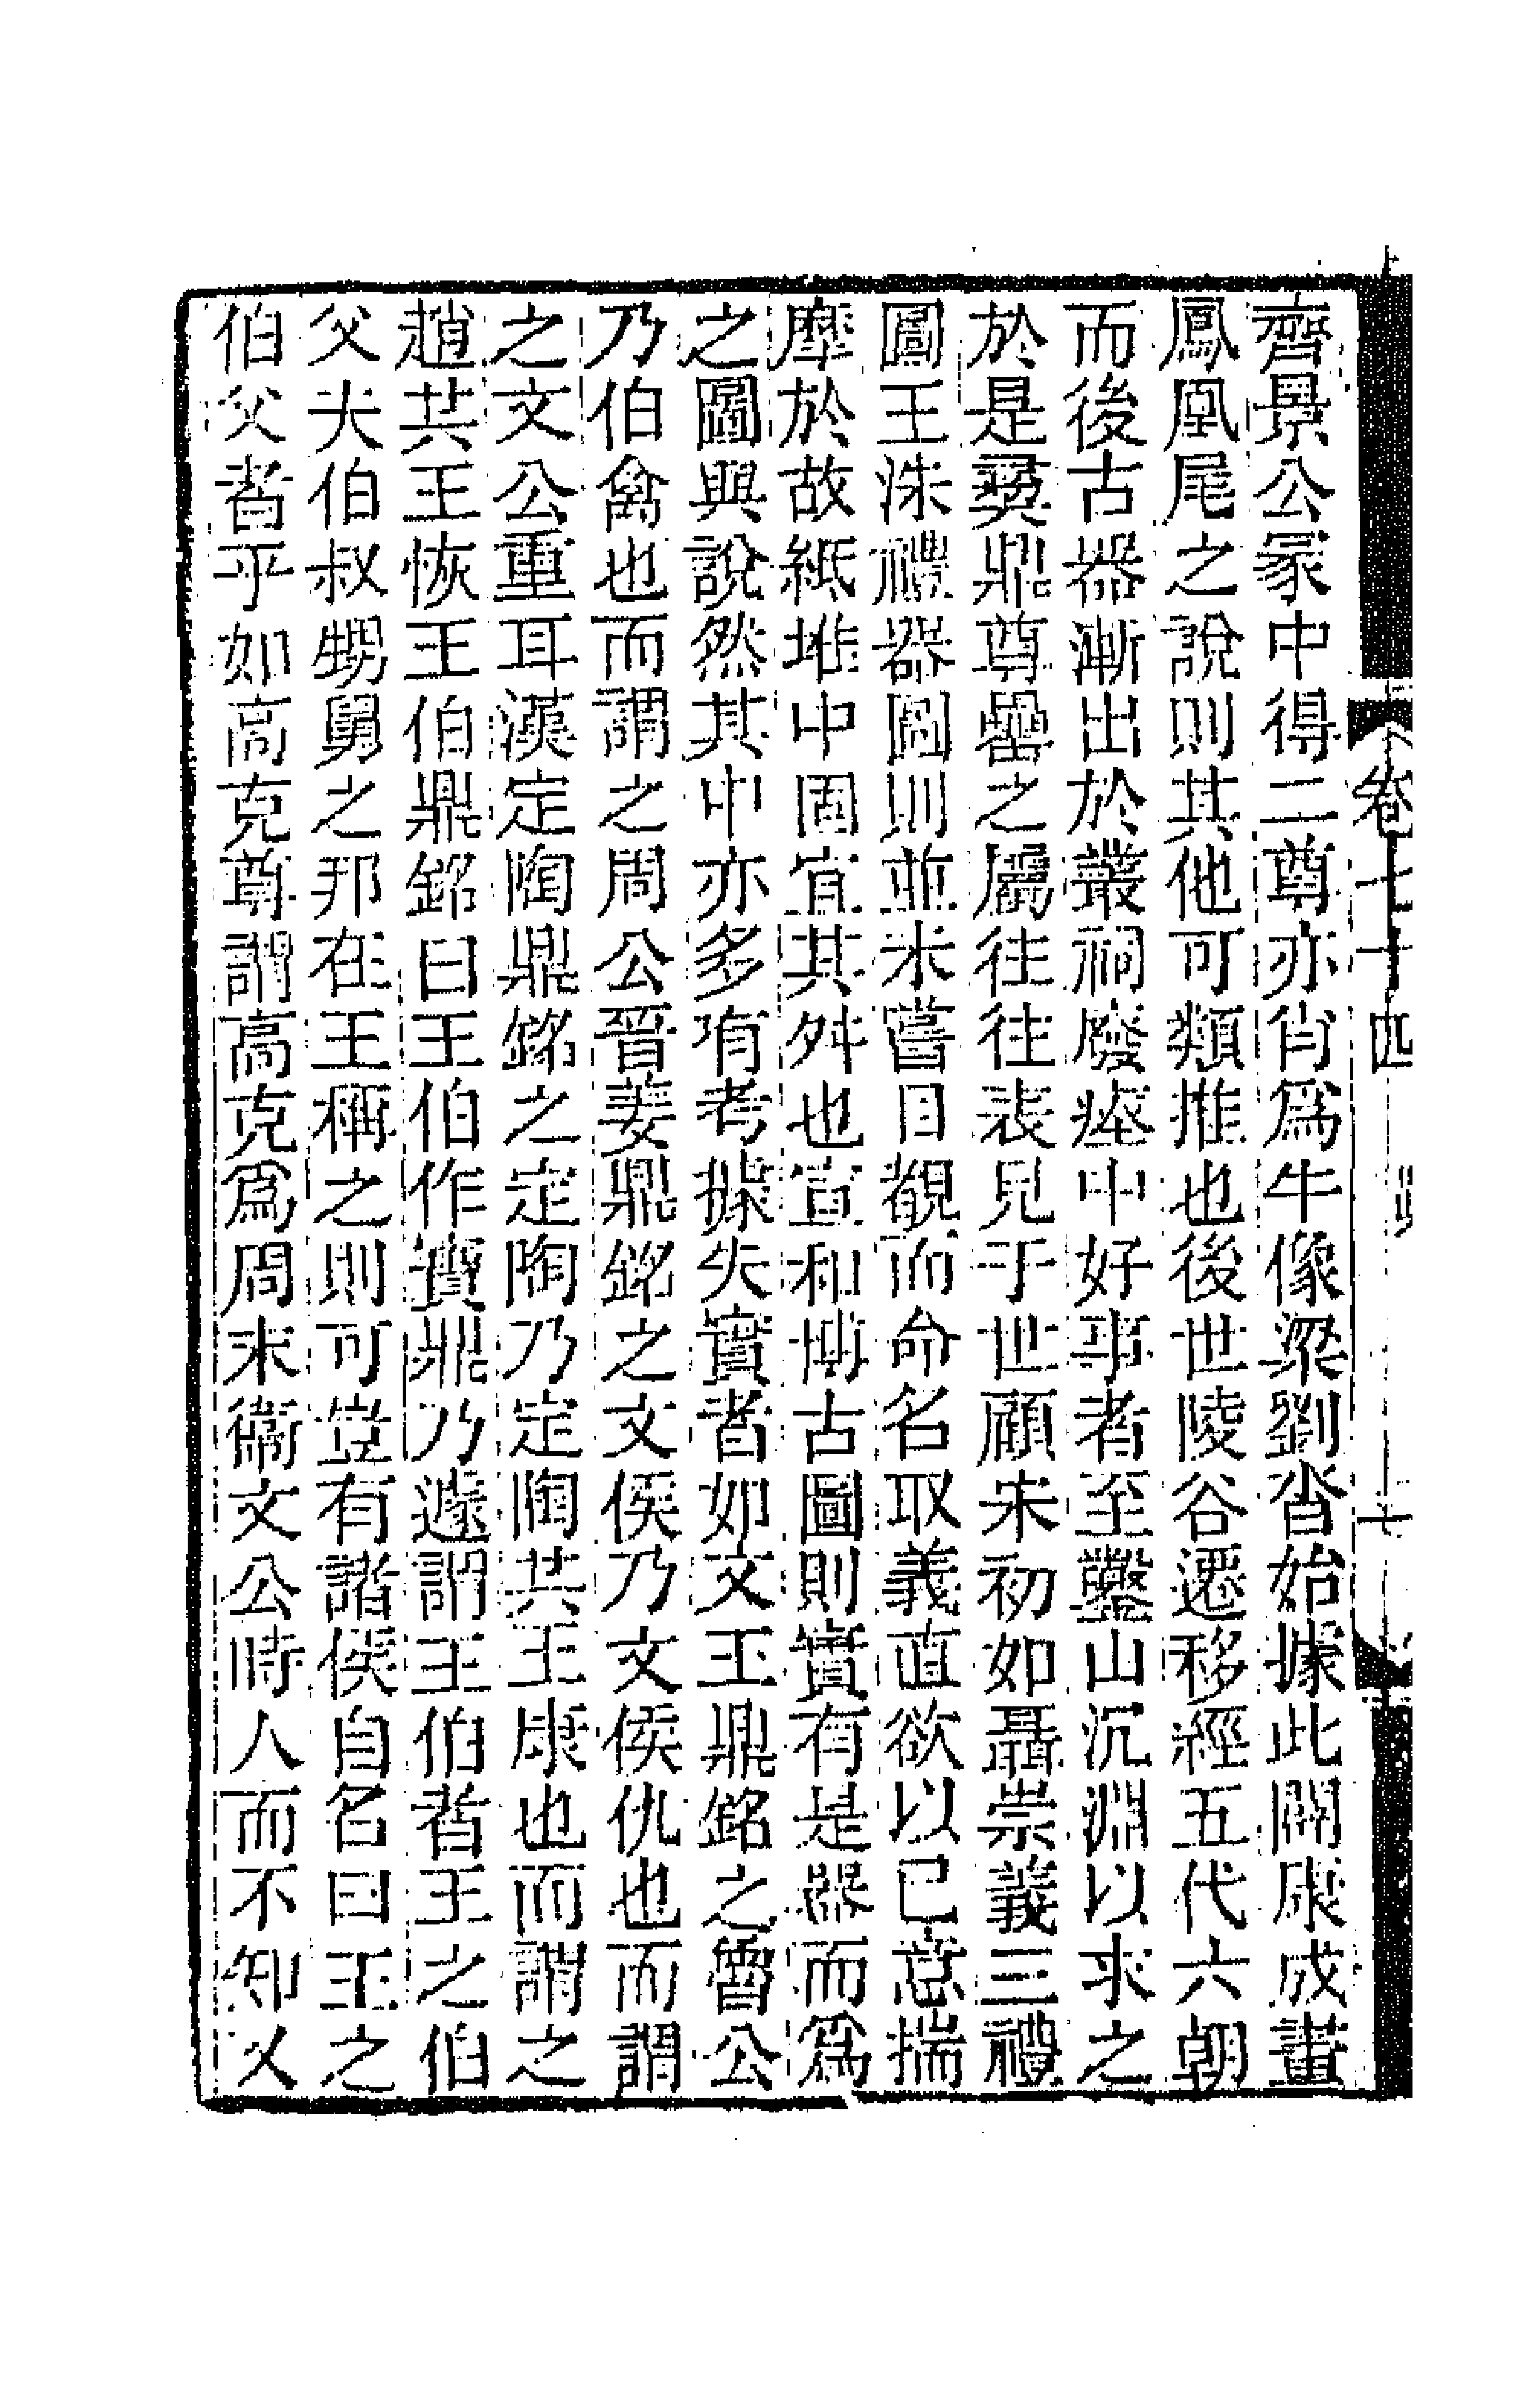 齊景公冢中得二尊亦肖爲牛像梁劉沓始據此闢康成畫
鳳凰尾之說則其他可類推也後世陵谷遷移經五代六朝
而後古器漸出於叢祠廢瘞中好事者至鑿山沉淵以求之
於是彞鼎尊罍之屬往往表見于世顧宋初如聶崇義三禮
圖王洙禮器圖則並未嘗目覩而命名取義直欲以已意揣
摩於故紙堆中固宜其舛也宣和博古圖則實有是器而爲
之圖與說然其中亦多有考據失實者如文王鼎銘之魯公
乃伯禽也而謂之周公晉姜鼎銘之文侯乃文侯仇也而謂
之文公重耳漢定陶鼎銘之定陶乃定陶共王康也而謂之
趙共王恢王伯鼎銘曰王伯作寶鼎乃遽謂王伯者王之伯
父夫伯叔甥舅之邦在王稱之則可豈有諸侯自名曰王之
伯父者乎如高克尊謂高克爲周末衞文公時人而不知乂
卷七十四